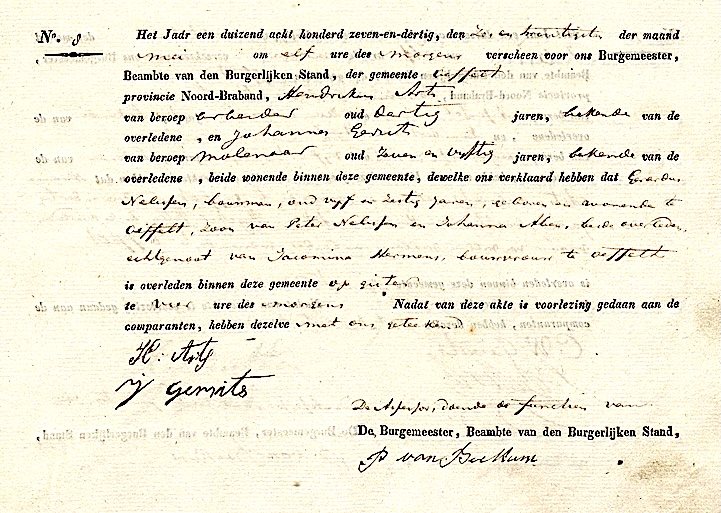 No. 8
Het Jaar een duizend acht honderd zeven-en-dertig, den Zes en twintigsten der maand
mei om elf ure des morgens verscheen voor ons Burgemeester,
Beambte van den Burgerlijken Stand, der gemeente Oeffelt
provincie Noord-Braband, Hendrikus Arts
van beroep arbeider oud dertig jaren, bekende van de
overledene , en Johannes Gerrits
van beroep molenaar oud Zeven en vyftig jaren, bekende van de
overledene , beide wonende binnen deze gemeente, dewelke ons verklaard hebben dat Gerardus
Nelissen, bouwman, oud vyf en Zestig Jaren, geboren en wonende te
Oeffelt, Zoon van Peter Nelissen en Johanna Aben, beide overleden,
echtgenoot van Jacomina Hermens, bouwvrouw te Oeffelt
is overleden binnen deze gemeente op gisteren
te vier ure des morgens Nadat van deze akte is voorlezing gedaan aan de
comparanten, hebben dezelve met ons geteekend
H: Arts
J Gerrits
De Assessor, doende de functien van
De, Burgemeester, Beambte van den Burgerlijken Stand,
P van Beekum